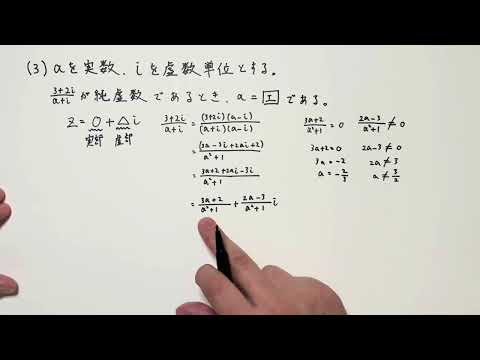 (3) aを実数、iを虚数単位とする。
(3+2i)/(a+i) が純虚数であるとき、a = エ である。
z = ○ + △i
実部 虚部
(3+2i)/(a+i) = (3+2i)(a-i)/(a+i)(a-i)
= (3a-3i+2ai+2)/(a²+1)
= (3a+2+2ai-3i)/(a²+1)
= (3a+2)/(a²+1) + (2a-3)/(a²+1) i
(3a+2)/(a²+1) = 0
3a+2=0
3a=-2
a=-2/3
(2a-3)/(a²+1) ≠ 0
2a-3≠0
2a≠3
a≠3/2